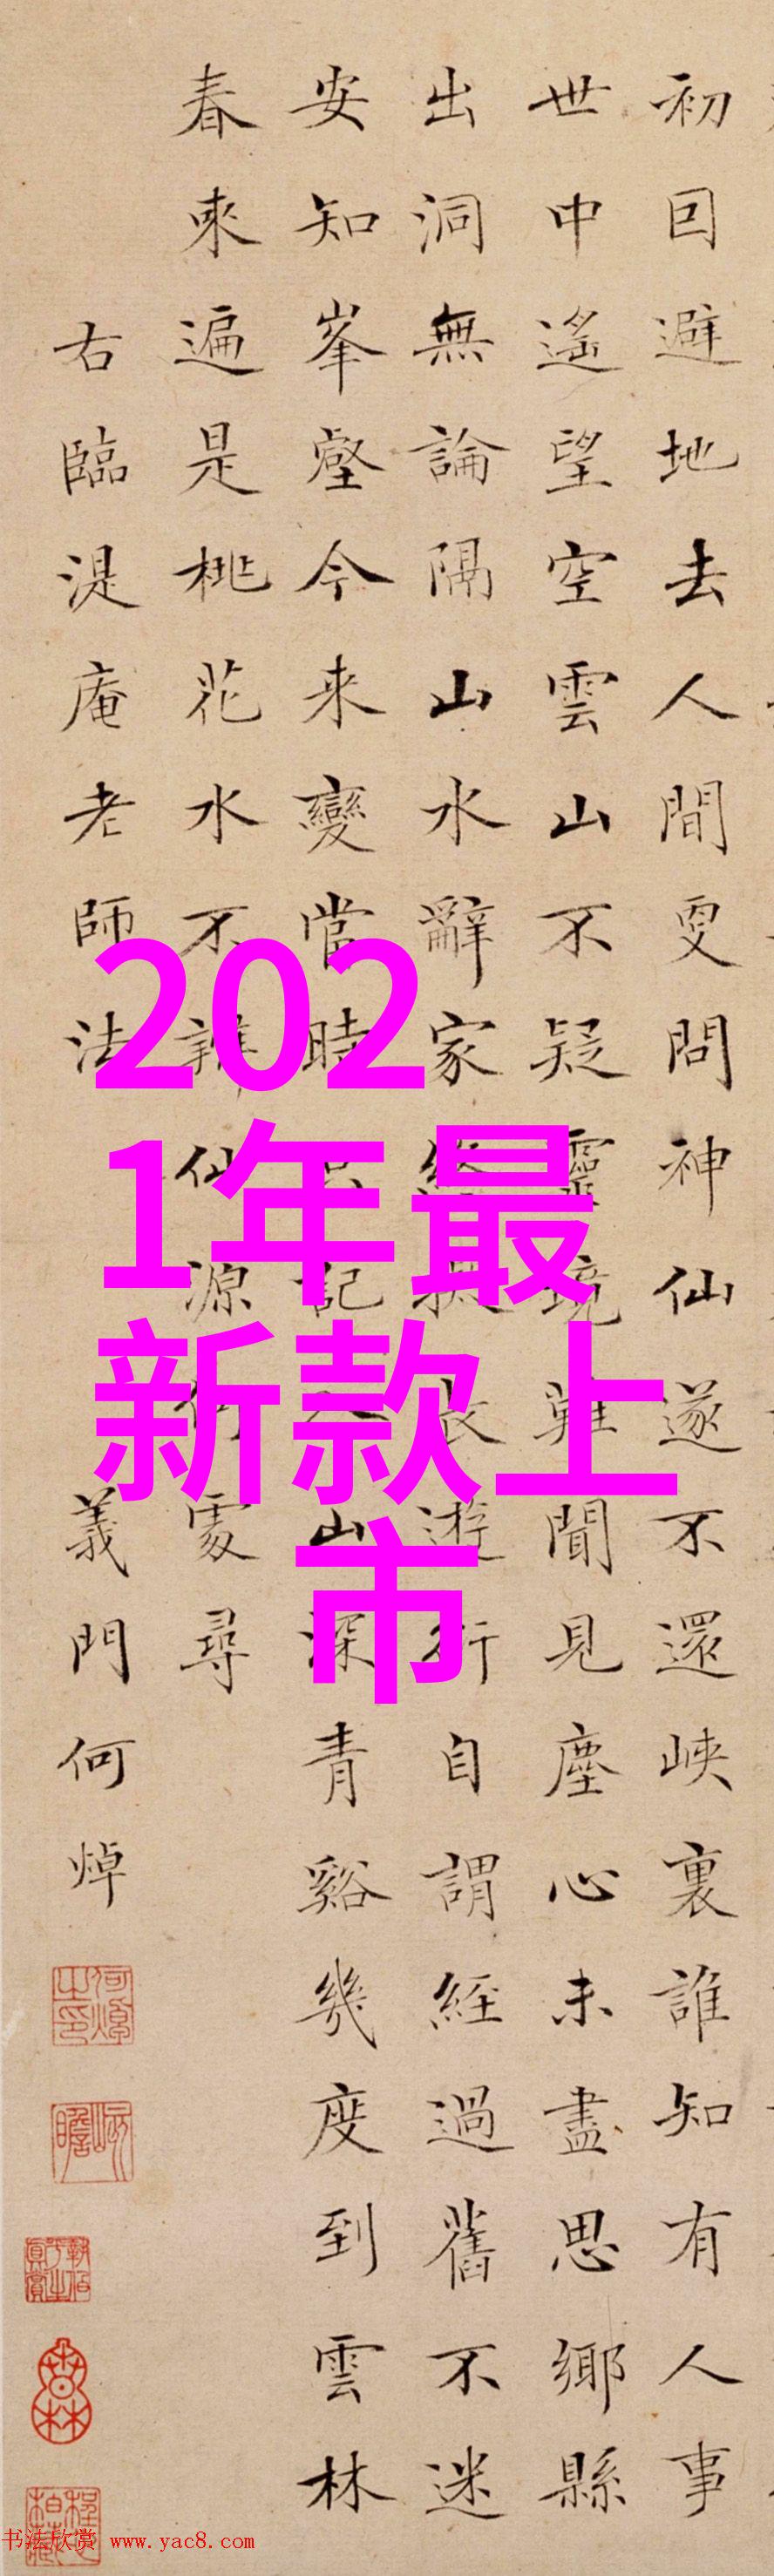 初囙避地去人間更問神仙遂不還峽裏誰知有人事
世中遙望空雲山不疑靈境難聞見塵心未盡思鄉縣
出洞無論隔山水辭家終擬長遊行自謂經過舊不迷
安知峯壑今来變當時只記入山深青谿幾度到雲林
春來遍是桃花水不辨仙源何處尋
右臨湜庵老師法 義門何焯
何焯之印
屺瞻
202
1年最
新款上
市
书法欣赏 www.yac8.com